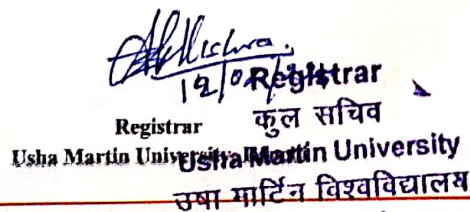 Registrar
कुल सचिव
Registrar
Usha Martin University
Usha Martin University
उषा मार्टिन विश्वविद्यालय